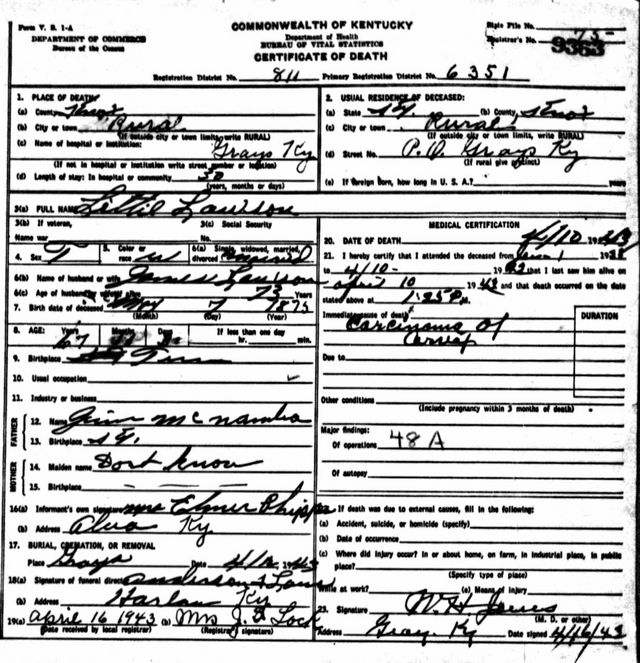 Form V. S. 1-A
DEPARTMENT OF COMMERCE
Bureau of the Census
COMMONWEALTH OF KENTUCKY
Department of Health
BUREAU OF VITAL STATISTICS
CERTIFICATE OF DEATH
State File No. 75-
Registrar's No. 9363
Registration District No. 811 Primary Registration District No. 6351
1. PLACE OF DEATH:
(a) County Knox
(b) City or town Rural
(If outside city or town limits, write RURAL)
(c) Name of hospital or institution: Grays Ky
(If not in hospital or institution write street number or location)
(d) Length of stay: In hospital or community 30
(years, months or days)
2. USUAL RESIDENCE OF DECEASED:
(a) State Ky (b) County Knox
(c) City or town Rural
(If outside city or town limits, write RURAL)
(d) Street No. P.O. Grays Ky
(If rural give precinct)
(e) If foreign born, how long in U. S. A.? years
3(a) FULL NAME Lettie Lawson
3(b) If veteran, Name war
3(c) Social Security No.
4. Sex F 5. Color or race W 6(a) Single, widowed, married, divorced married
6(b) Name of husband or wife James Lawson
6(c) Age of husband or wife if alive 73 Years
7. Birth date of deceased May 7 1875
(Month) (Day) (Year)
8. AGE: Years 67 Months Days If less than one day hr. min.
9. Birthplace
10. Usual occupation
11. Industry or business
FATHER
12. Name Jim McNamba
13. Birthplace Ky.
MOTHER
14. Maiden name Dont Know
15. Birthplace
16(a) Informant's own signature Mrs Elmer Phipps
(b) Address Alva Ky
17. BURIAL, CREMATION, OR REMOVAL
Place Grays Date 4/12 1943
18(a) Signature of funeral director Anderson &
(b) Address Harlan Ky
19(a) April 16 1943 (b) Mrs J. D. Lock
(Date received by local registrar) (Registrar's signature)
MEDICAL CERTIFICATION
20. DATE OF DEATH 4/10 1943
21. I hereby certify that I attended the deceased from 19
to 4/10- 1943 that I last saw him alive on
April 10 1943 and that death occurred on the date
stated above at 1:25 P.M.
Immediate cause of death Carcinoma of
DURATION
Due to
Other conditions
(Include pregnancy within 3 months of death)
Major findings:
Of operations 48 A
Of autopsy
22. If death was due to external causes, fill in the following:
(a) Accident, suicide, or homicide (specify)
(b) Date of occurrence
(c) Where did injury occur? In or about home, on farm, in industrial place, in public
place?
(Specify type of place)
While at work? (e) Means of injury
23. Signature W. H. Jones
(M. D. or other)
Address Gray, Ky Date signed 4/16/43